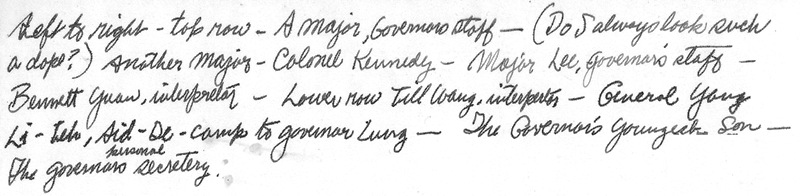 Left to right - top row - A major, Governors staff - (Do I always look such
a dope?) Another Major - Colonel Kennedy - Major Lee, governor's staff -
Bennett Yuan, interpreter - Lower row Till Wang, interpreter - General Yang
Li-teh, Aid-De-camp to governor Lung - The Governor's Youngest Son -
The governors personal secretery.